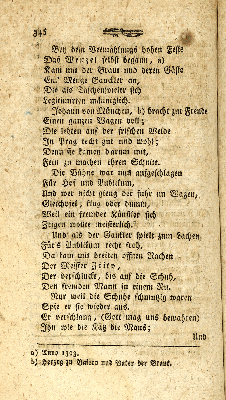 348
Bey dem Vermählungs hohen Feste
Das Wenzel selbst begann, a)
Kam mit der Braut und deren Gäste
Ein' Menge Gauckler an,
Die als Taschenspieler sich
Legitimirten männiglich.
Johann von München, b) bracht zur Freude
Einen ganzen Wagen voll;
Die lebten auf der frischen Weide
In Prag recht gut und wohl;
Denn sie kamen darum mit,
Fett zu machen ihren Schnitt.
Die Bühne war nun aufgeschlagen
Für Hof und Publikum,
Und wer nicht gieng die fuhr im Wagen,
Gleichviel, klug oder dumm,
Weil ein fremder Künstler sich
Zeigen wollte meisterlich.
Und als der Gaukler spielt zum Lachen
Für's Publikum recht kraß,
Da kam mit breiten offnen Rachen
Der Meister Zitto,
Der verschluckt, bis auf die Schuh,
Den fremden Mann in einem Nu.
Nur weil die Schuhe schmutzig waren
Spie er sie wieder aus.
Er verschlang, (Gott mag uns bewahren)
Ihn wie die Katz die Maus;
Und
a) Anno 1303.
b) Herzog zu Baiern und Vater der Braut.